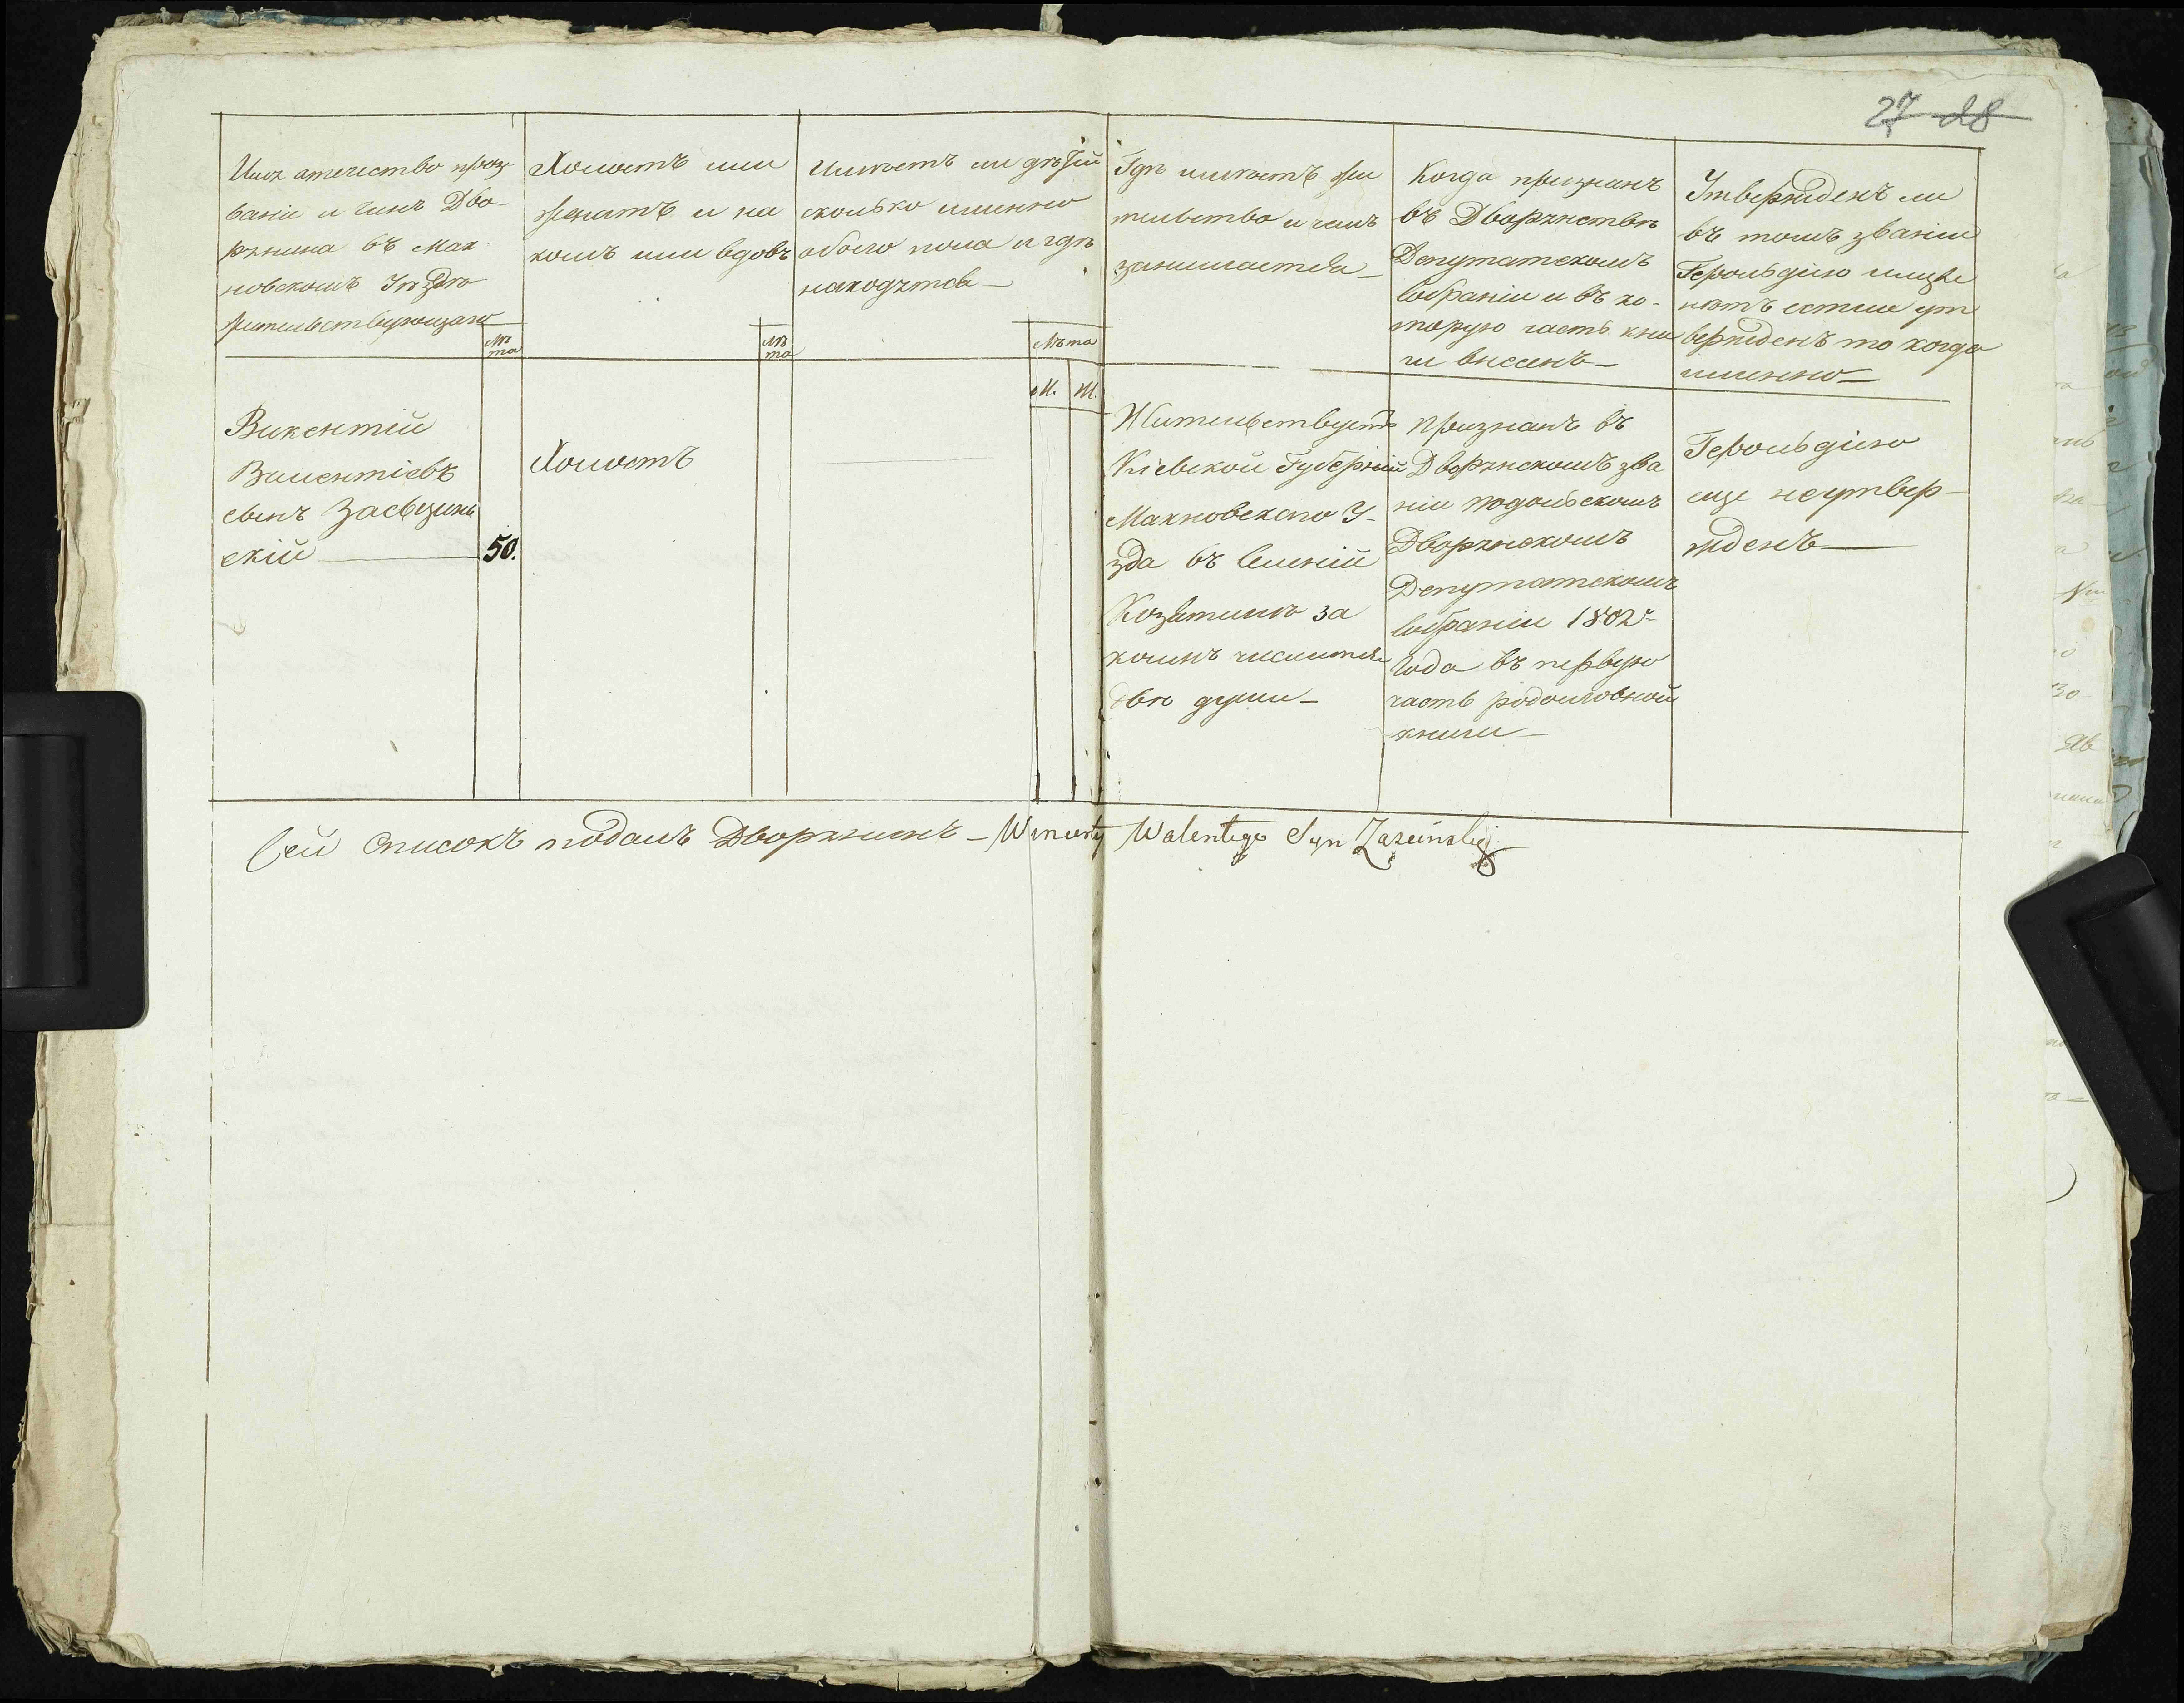 27 28
Имя отечество проз
ваніе и Чинъ Дво-
рянина въ Мах
новскомъ Уѣздѣ
жительствующаго
Лѣ
та
Холостъ или
женатъ и на
комъ или вдовъ
Лѣ
та
Имѣетъ ли дѣтей
сколько именно
обоего пола и гдѣ
находятся —
Лѣта
М. Ж.
Гдѣ имѣетъ жи
тельство и чемъ
занимается —
Когда признанъ
въ Дворянствѣ
Депутатскомъ
собраніи и въ ко-
торую часть кни
ги внесенъ —
Утвержденъ ли
въ томъ званіи
Герольдіею или
нѣтъ естли ут
вержденъ то когда
именно —
Викентій
Валентіевъ
сынъ
скій — 50.
Холостъ
Жительствуетъ
Кіевской Губерніи
Махновскаго У-
зда въ
за
коимъ числится
двѣ души —
Признанъ въ
Дворянскомъ зва
ніи Подольскомъ
Дворянскомъ
Депутатскомъ
собраніи 1802г
Года въ первую
часть родословной
книги —
Герольдіею
еще неутвер-
жденъ —
Сей Списокъ подалъ Дворянинъ — Wincenty Walentego Syn